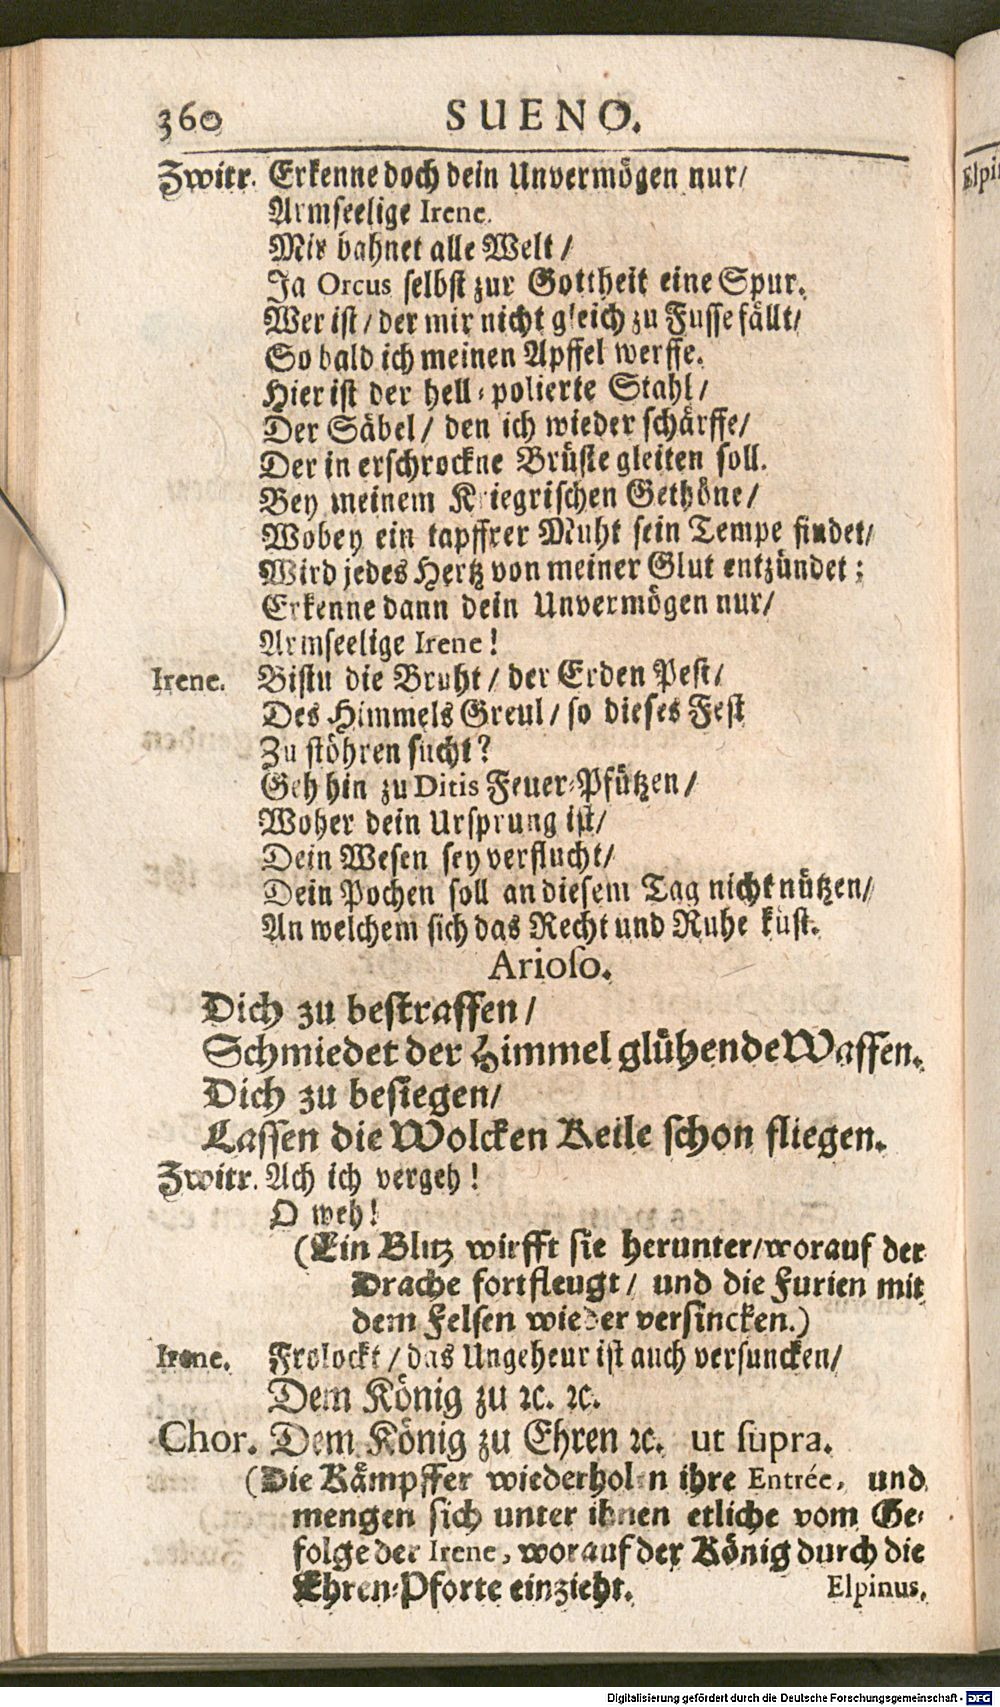 360 SUENO.
Zwitr. Erkenne doch dein Unvermögen nur/
Armseelige Irene.
Mir bahnet alle Welt /
Ja Orcus selbst zur Gottheit eine Spur.
Wer ist / der mir nicht gleich zu Fusse fällt/
So bald ich meinen Apffel werffe.
Hier ist der hell-polierte Stahl /
Der Säbel / den ich wieder schärffe/
Der in erschrockne Brüste gleiten soll.
Bey meinem Kriegrischen Gethöne /
Wobey ein tapffrer Muht sein Tempe findet/
Wird jedes Hertz von meiner Glut entzündet;
Erkenne dann dein Unvermögen nur/
Armseelige Irene!
Irene. Bistu die Bruht / der Erden Pest /
Des Himmels Greul / so dieses Fest
Zu stöhren sucht?
Geh hin zu Ditis Feuer-Pfützen /
Woher dein Ursprung ist/
Dein Wesen sey verflucht/
Dein Pochen soll an diesem Tag nicht nützen/
An welchem sich das Recht und Ruhe küst.
Arioso.
Dich zu bestraffen /
Schmiedet der Himmel glühende Waffen.
Dich zu besiegen/
Lassen die Wolcken Keile schon fliegen.
Zwitr. Ach ich vergeh!
O weh!
(Ein Blitz wirfft sie herunter/worauf der
Drache fortfleugt / und die Furien mit
dem Felsen wieder versincken.)
Irene. Frolockt / das Ungeheur ist auch versuncken/
Dem König zu ꝛc. ꝛc.
Chor. Dem König zu Ehren ꝛc. ut supra.
(Die Kämpffer wiederholen ihre Entrée, und
mengen sich unter ihnen etliche vom Ge-
folge der Irene, worauf der König durch die
Ehren-Pforte einzieht. Elpinus.
Digitalisierung gefördert durch die Deutsche Forschungsgemeinschaft - DFG